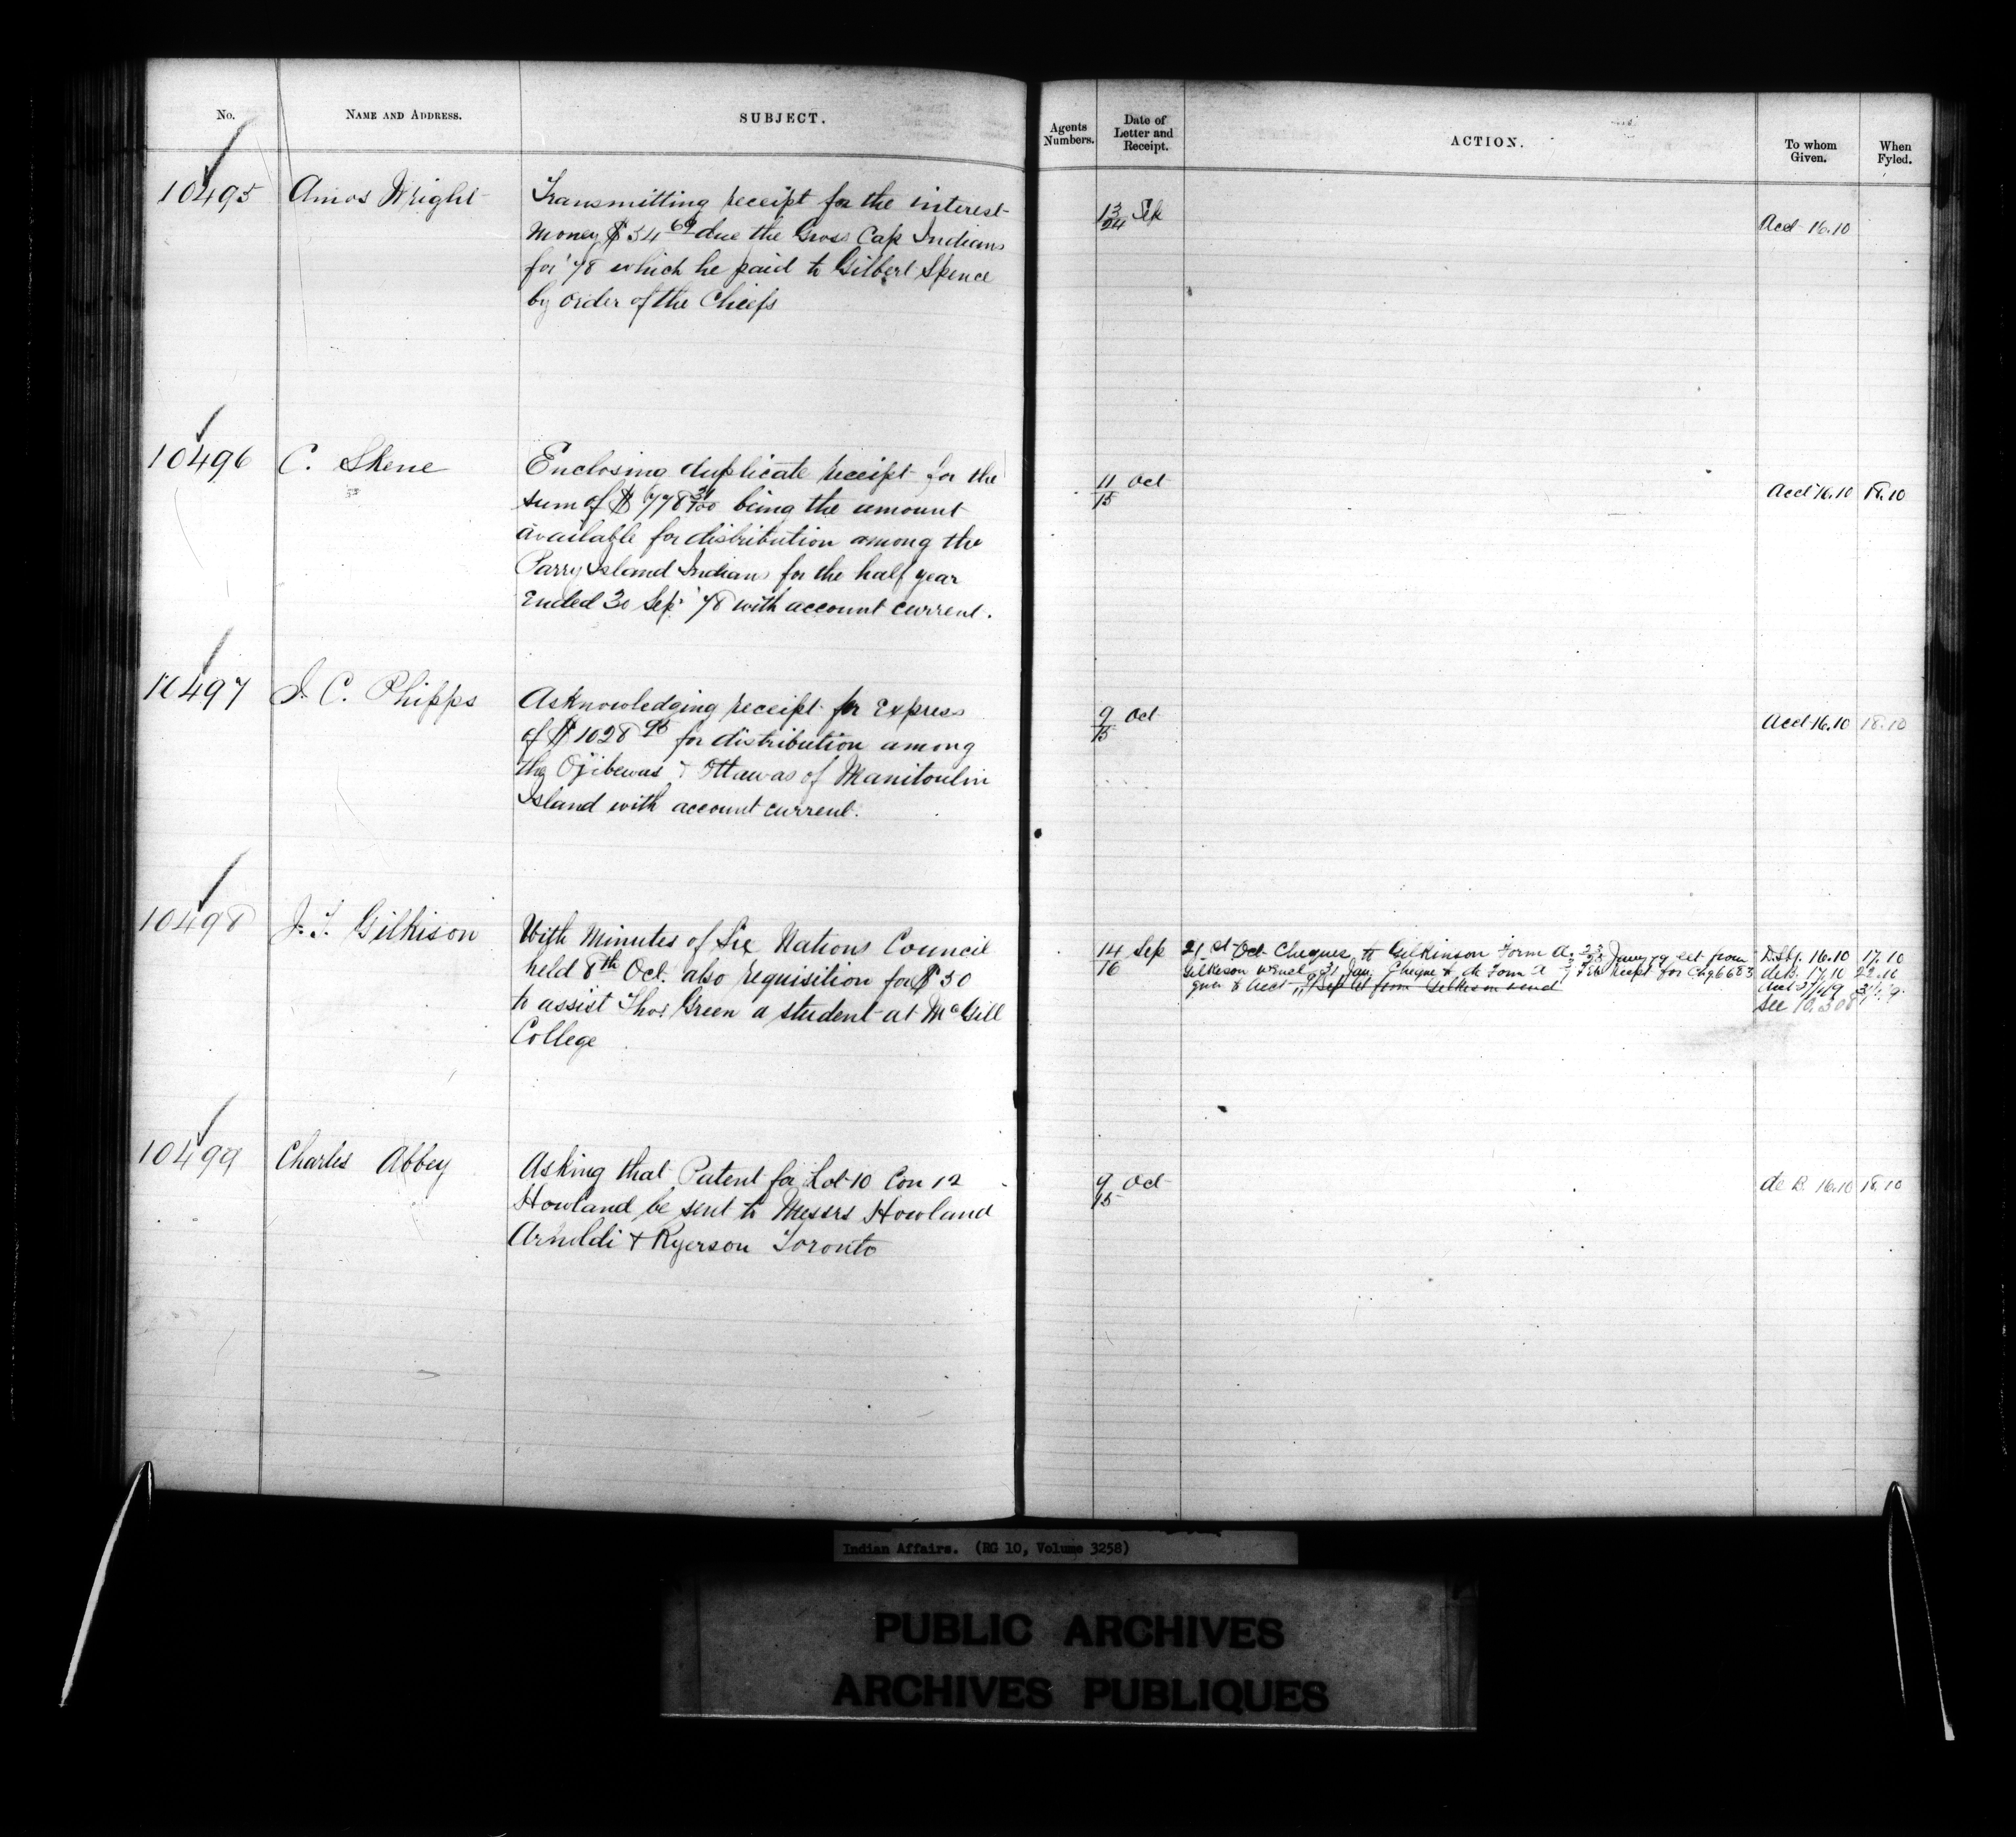 No.
NAME AND ADDRESS.
SUBJECT.
Agents Numbers.
Date of Letter and Receipt.
ACTION.
To whom Given.
When Fyled.
10495
Amos Wright
Transmitting receipt for the interest
money $34 69 due the Gros Cap Indians
for '78 which he paid to Gilbert Spence
by order of the Chiefs
13/24 Sep
Acct 16.10
10496
C. Skene
Enclosing duplicate receipt for the
sum of $ 778 31/100 being the amount
available for distribution among the
Parry Island Indians for the half year
Ended 30 Sep '78 with account current.
11/15 Oct
Acct 16.10
18.10
10497
J. C. Phipps
Acknowledging receipt for Express
of $1028 95 for distribution among
the Ojibewas & Ottawas of Manitoulin
Island with account current.
9/15 Oct
Acct 16.10
18.10
10498
J. T. Gilkison
With Minutes of Six Nations Council
held 8th Oct. also requisition for $30
to assist Thos Green a student at McGill
College
14/16 Sep
21st Oct Cheques to Gilkinson Form A. 23/25 Jany 79 let from
Gilkison 31 Jan. Cheque to do Form A Feb recept for Chq 6683
let from Gilkison
16.10 17.10
de B. 17.10 22.10
Acct
See 10.308
10499
Charles Abbey
Asking that Patent for Lot 10 Con 12
Howland be sent to Messrs Howland
Arnoldi & Ryerson Toronto
9/15 Oct
de B. 16.10
18.10
Indian Affairs. (RG 10, Volume 3258)
PUBLIC ARCHIVES
ARCHIVES PUBLIQUES